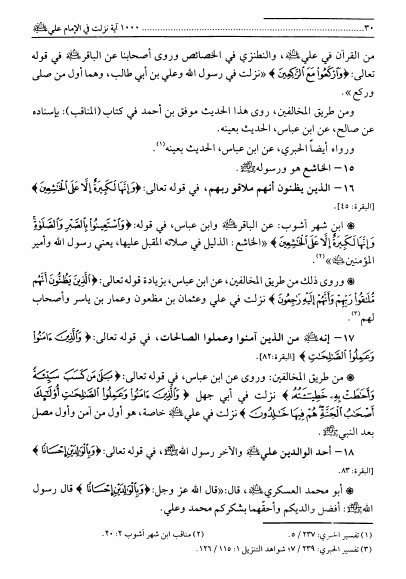 ٣٠ ........ ١٠٠٠ آية نزلت في الإمام علي ﷺ
من القرآن في علي ﷺ، والنطنزي في الخصائص وروى أصحابنا عن الباقر ﷺ في قوله
تعالى: ﴿وَارْكَعُوا مَعَ الرَّاكِعِينَ﴾ «نزلت في رسول الله وعلي بن أبي طالب، وهما أول من صلى
وركع».
ومن طريق المخالفين، روى هذا الحديث موفق بن أحمد في كتاب (المناقب): بإسناده
عن صالح، عن ابن عباس، الحديث بعينه.
ورواه أيضاً الحبري، عن ابن عباس، الحديث بعينه(١).
١٥ - الخاشع هو ورسوله ﷺ.
١٦ - الذين يظنون أنهم ملاقو ربهم، في قوله تعالى: ﴿وَإِنَّهَا لَكَبِيرَةٌ إِلَّا عَلَى الْخَاشِعِينَ﴾
[البقرة: ٤٥].
❁ ابن شهر آشوب: عن الباقر ﷺ وابن عباس، في قوله: ﴿وَاسْتَعِينُوا بِالصَّبْرِ وَالصَّلَاةِ
وَإِنَّهَا لَكَبِيرَةٌ إِلَّا عَلَى الْخَاشِعِينَ﴾ «الخاشع: الذليل في صلاته المقبل عليها، يعني رسول الله وأمير
المؤمنين ﷺ»(٢).
❁ وروى ذلك من طريق المخالفين، عن ابن عباس، بزيادة قوله تعالى: ﴿الَّذِينَ يَظُنُّونَ أَنَّهُم
مُّلَاقُوا رَبِّهِمْ وَأَنَّهُمْ إِلَيْهِ رَاجِعُونَ﴾ نزلت في علي وعثمان بن مظعون وعمار بن ياسر وأصحاب
لهم(٣).
١٧ - إنه ﷺ من الذين آمنوا وعملوا الصالحات، في قوله تعالى: ﴿وَالَّذِينَ ءَامَنُوا
وَعَمِلُوا الصَّالِحَاتِ﴾ [البقرة:٨٢].
❁ من طريق المخالفين: وروى عن ابن عباس، في قوله تعالى: ﴿بَلَىٰ مَن كَسَبَ سَيِّئَةً
وَأَحَاطَتْ بِهِ خَطِيئَتُهُ﴾ نزلت في أبي جهل ﴿وَالَّذِينَ ءَامَنُوا وَعَمِلُوا الصَّالِحَاتِ أُولَٰئِكَ
أَصْحَابُ الْجَنَّةِ هُمْ فِيهَا خَالِدُونَ﴾ نزلت في علي ﷺ خاصة، هو أول من آمن وأول مصل
بعد النبي ﷺ.
١٨ - أحد الوالدين علي ﷺ والآخر رسول الله ﷺ، في قوله تعالى: ﴿وَبِالْوَالِدَيْنِ إِحْسَانًا﴾
[البقرة: ٨٣].
❁ أبو محمد العسكري ﷺ، قال: «قال الله عز وجل: ﴿وَبِالْوَالِدَيْنِ إِحْسَانًا﴾ قال رسول
الله ﷺ: أفضل والديكم وأحقّهما بشكركم محمد وعلي.
(١) تفسير الحبري: ٢٣٧ / ٥. (٢) مناقب ابن شهر آشوب ٢: ٢٠.
(٣) تفسير الحبري: ٢٣٩ / ٧؛ شواهد التنزيل ١: ١١٥ / ١٢٦.